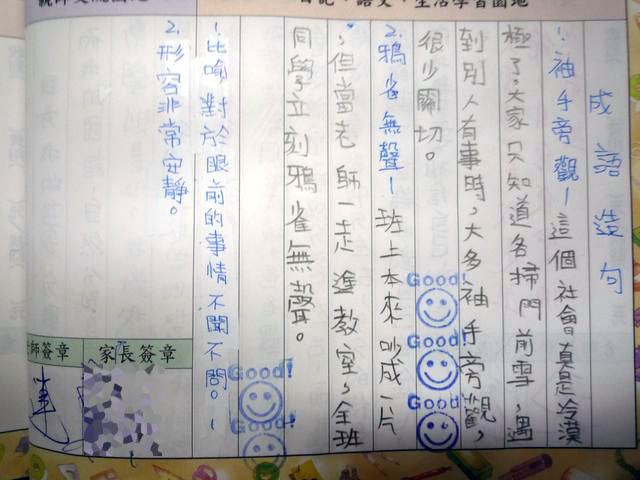 日記、語文、生活學習園地
成語造句
1.袖手旁觀—這個社會真是冷漠
極了,大家只知道各掃門前雪,遇
到別人有事時,大多袖手旁觀,
很少關切。
2.鴉雀無聲—班上本來吵成一片
,但當老師一走進教室,全班
同學立刻鴉雀無聲。
1.比喻對於眼前的事情不聞不問。
2.形容非常安靜。
Good!
Good!
Good!
Good!
Good!
師簽章
家長簽章